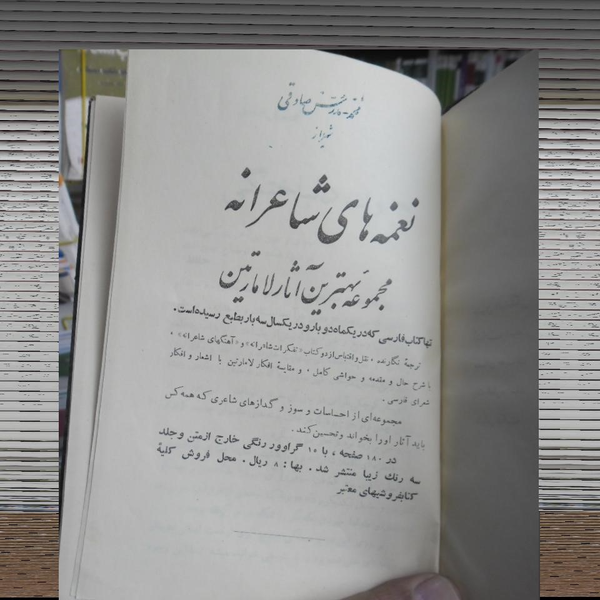 صادقی
شیراز
نغمه های شاعرانه
مجموعه بهترین آثار لامارتین
تنها کتاب فارسی که در یکماه دو بار و در یکسال سه بار بطبع رسیده است.
ترجمهٔ نگارنده. نقل و اقتباس از دو کتاب «تفکرات شاعرانه» و «آهنگهای شاعرانه».
با شرح حال و مقدمه و حواشی کامل. و مقایسهٔ افکار لامارتین با اشعار و افکار
شعرای فارسی.
مجموعه‌ای از احساسات و سوز و گدازهای شاعری که همه کس
باید آثار اورا بخواند وتحسین کند.
در ۱۸۰ صفحه، با ۱۰ گراوور رنگی خارج ازمتن وجلد
سه رنگ زیبا منتشر شد. بها: ۸ ریال. محل فروش کلیهٔ
کتابفروشیهای معتبر